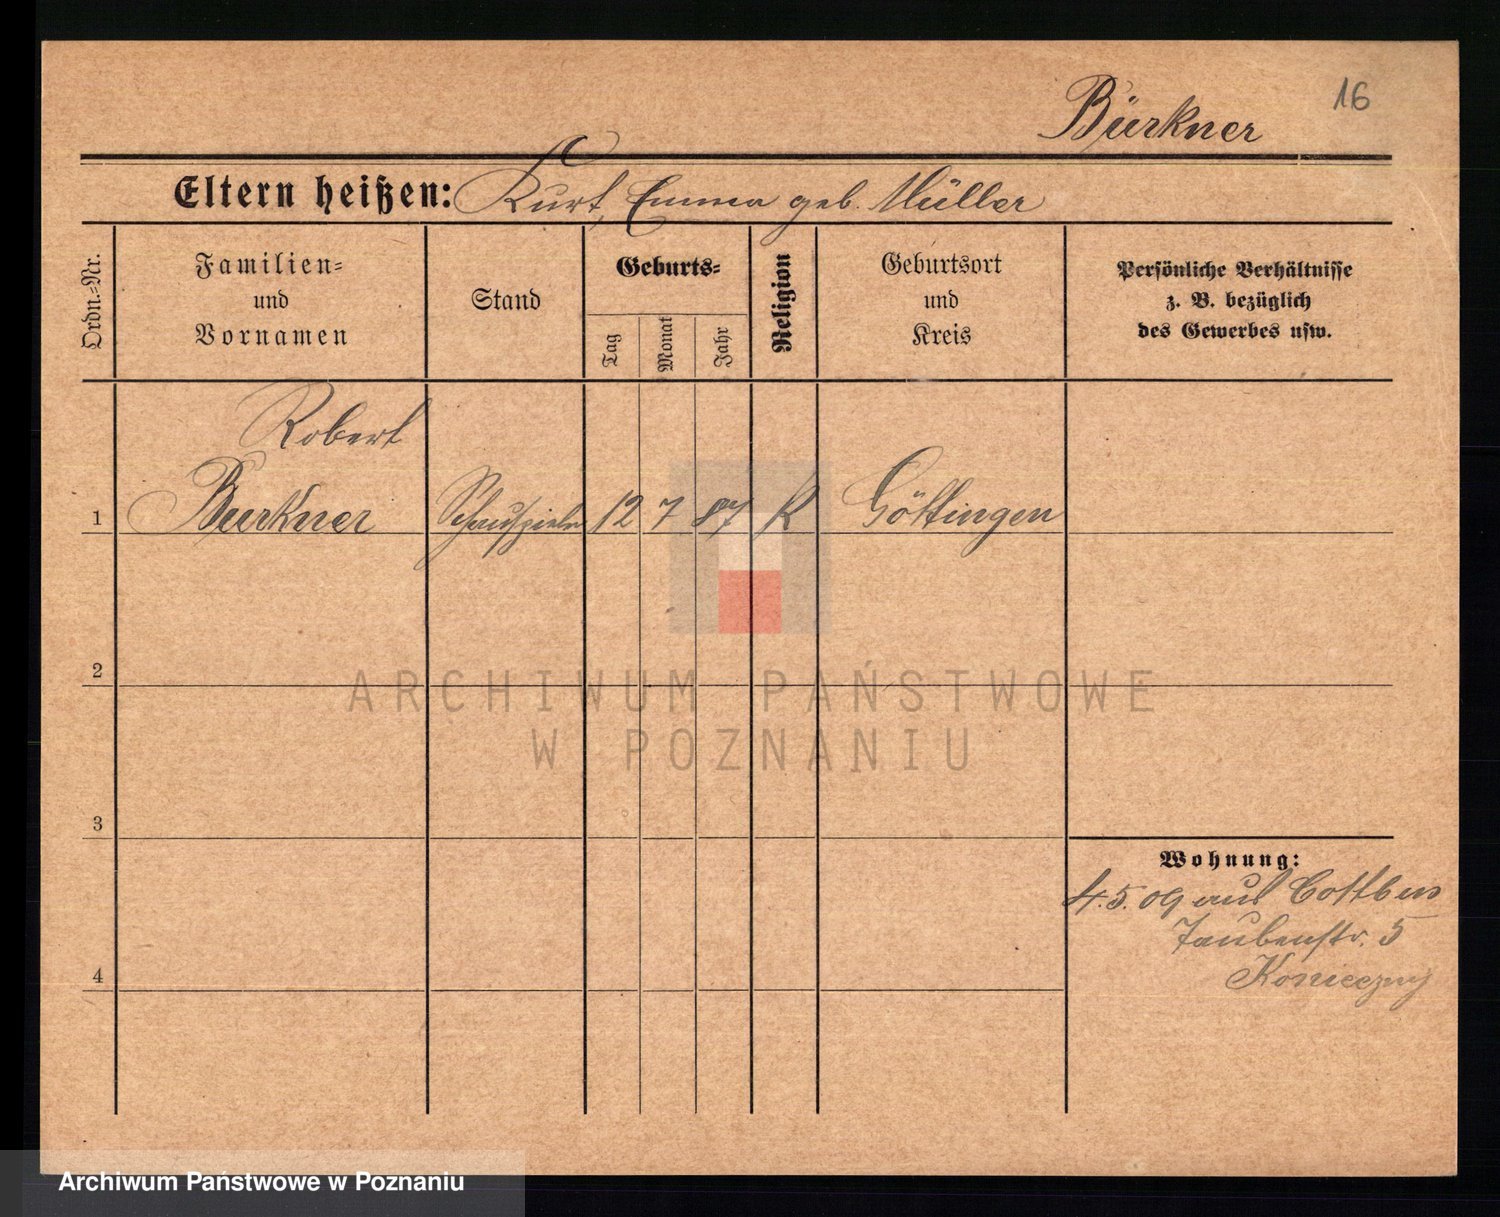 16
Bürkner
Eltern heißen: Kurt, Emma geb. Müller
Ordn.-Nr.
Familien-
und
Vornamen
Stand
Geburts-
Tag
Monat
Jahr
Religion
Geburtsort
und
Kreis
Persönliche Verhältnisse
z. B. bezüglich
des Gewerbes usw.
Robert
1 Bürkner Schauspieler 12 7 87 K Göttingen
2
3
4
Wohnung:
4.5.09 aus Cottbus
Taubenstr. 5
Konieczny
ARCHIWUM PAŃSTWOWE
W POZNANIU
Archiwum Państwowe w Poznaniu